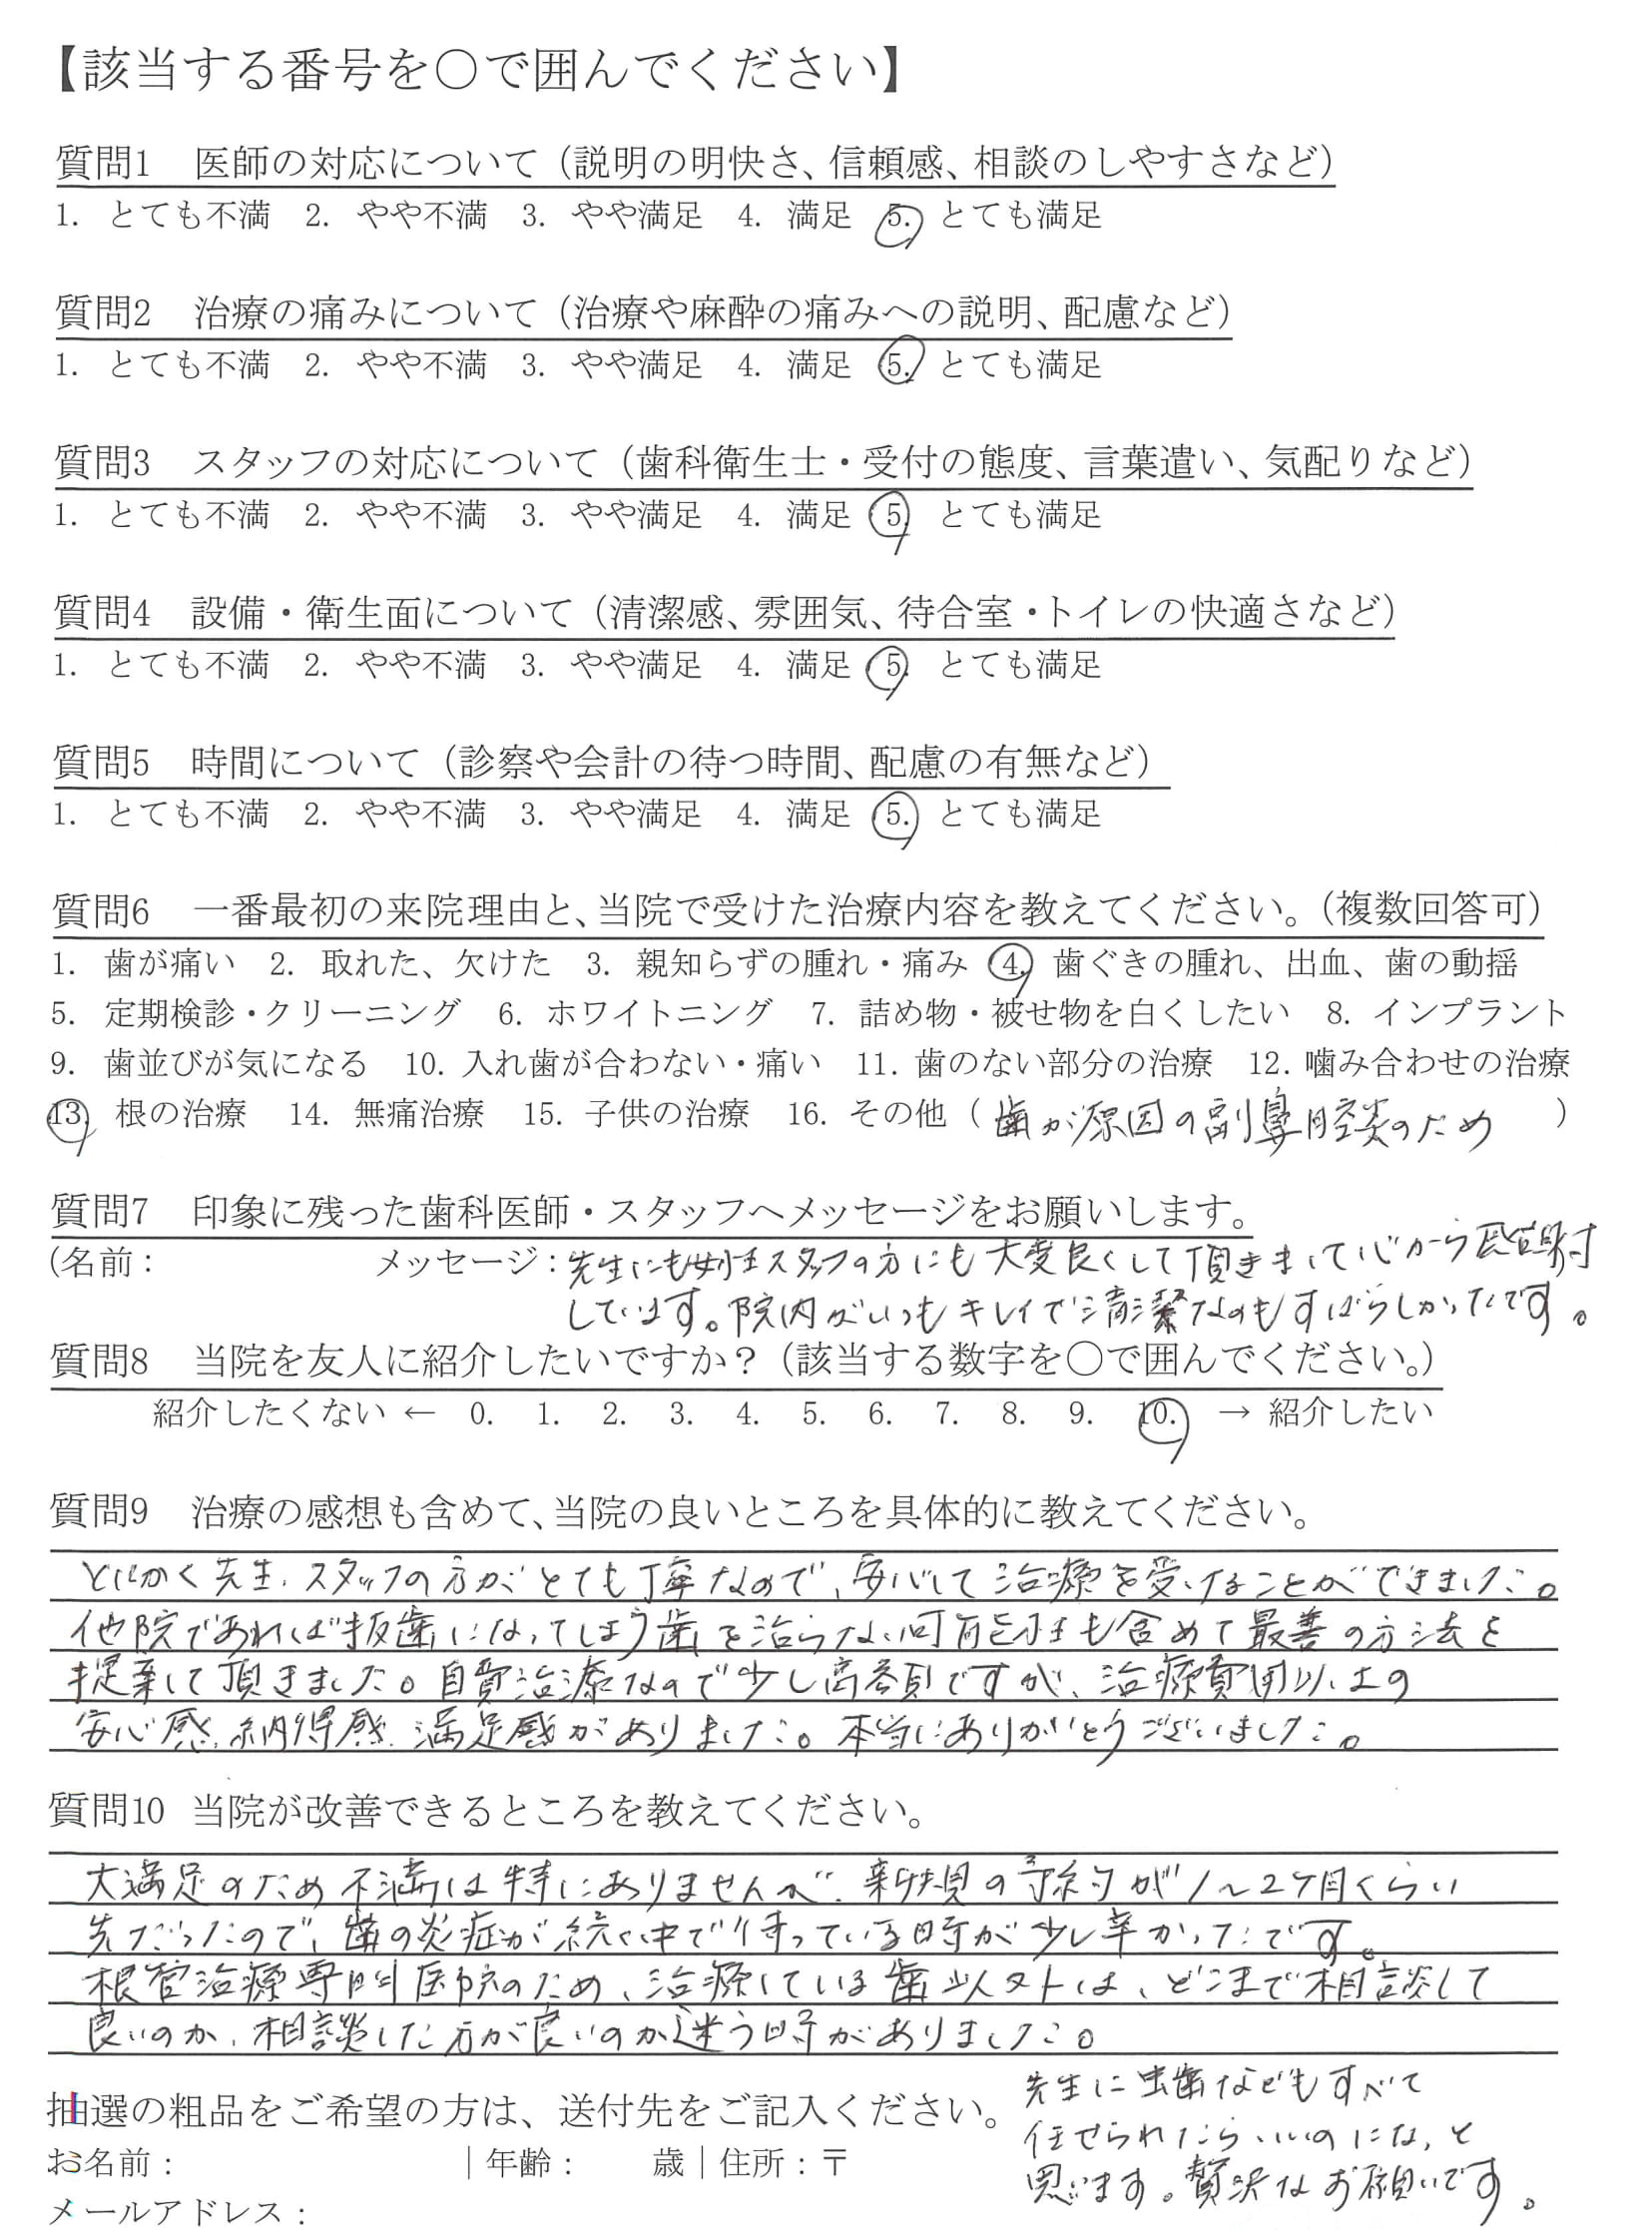 【該当する番号を○で囲んでください】
質問1　医師の対応について（説明の明快さ、信頼感、相談のしやすさなど）
1. とても不満　2. やや不満　3. やや満足　4. 満足　5. とても満足
質問2　治療の痛みについて（治療や麻酔の痛みへの説明、配慮など）
1. とても不満　2. やや不満　3. やや満足　4. 満足　5. とても満足
質問3　スタッフの対応について（歯科衛生士・受付の態度、言葉遣い、気配りなど）
1. とても不満　2. やや不満　3. やや満足　4. 満足　5. とても満足
質問4　設備・衛生面について（清潔感、雰囲気、待合室・トイレの快適さなど）
1. とても不満　2. やや不満　3. やや満足　4. 満足　5. とても満足
質問5　時間について（診察や会計の待つ時間、配慮の有無など）
1. とても不満　2. やや不満　3. やや満足　4. 満足　5. とても満足
質問6　一番最初の来院理由と、当院で受けた治療内容を教えてください。（複数回答可）
1. 歯が痛い　2. 取れた、欠けた　3. 親知らずの腫れ・痛み　4. 歯ぐきの腫れ、出血、歯の動揺
5. 定期検診・クリーニング　6. ホワイトニング　7. 詰め物・被せ物を白くしたい　8. インプラント
9. 歯並びが気になる　10. 入れ歯が合わない・痛い　11. 歯のない部分の治療　12. 噛み合わせの治療
13. 根の治療　14. 無痛治療　15. 子供の治療　16. その他（歯が原因の副鼻腔炎のため）
質問7　印象に残った歯科医師・スタッフへメッセージをお願いします。
（名前：　メッセージ：先生にも女性スタッフの方にも大変良くして頂きまして心から感謝
しています。院内がいつもキレイで清潔なのもすばらしかったです。
質問8　当院を友人に紹介したいですか？（該当する数字を○で囲んでください。）
紹介したくない ← 0. 1. 2. 3. 4. 5. 6. 7. 8. 9. 10. → 紹介したい
質問9　治療の感想も含めて、当院の良いところを具体的に教えてください。
とにかく先生、スタッフの方がとても丁寧なので、安心して治療を受けることができました。
他院であれば抜歯になってしまう歯を治らない可能性も含めて最善の方法を
提案して頂きました。自費治療なので少し高額ですが、治療費用以上の
安心感、納得感、満足感がありました。本当にありがとうございました。
質問10　当院が改善できるところを教えてください。
大満足のため不満は特にありませんが、新規の予約が1～2ヶ月くらい
先だったので、歯の炎症が続く中で待っている時が少し辛かったです。
根管治療専門医院のため、治療している歯以外は、どこまで相談して
良いのか、相談した方が良いのか迷う時がありました。
先生に虫歯などもすべて
任せられたらいいのにな、と
思います。贅沢なお願いです。
抽選の粗品をご希望の方は、送付先をご記入ください。
お名前：　｜年齢：　歳｜住所：〒
メールアドレス：